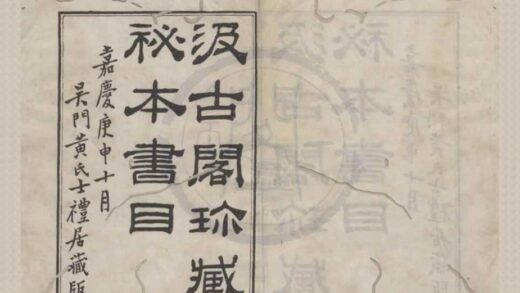 汲古閣珍藏
祕本書目
嘉慶庚申十月
吴門黃氏士禮居藏版